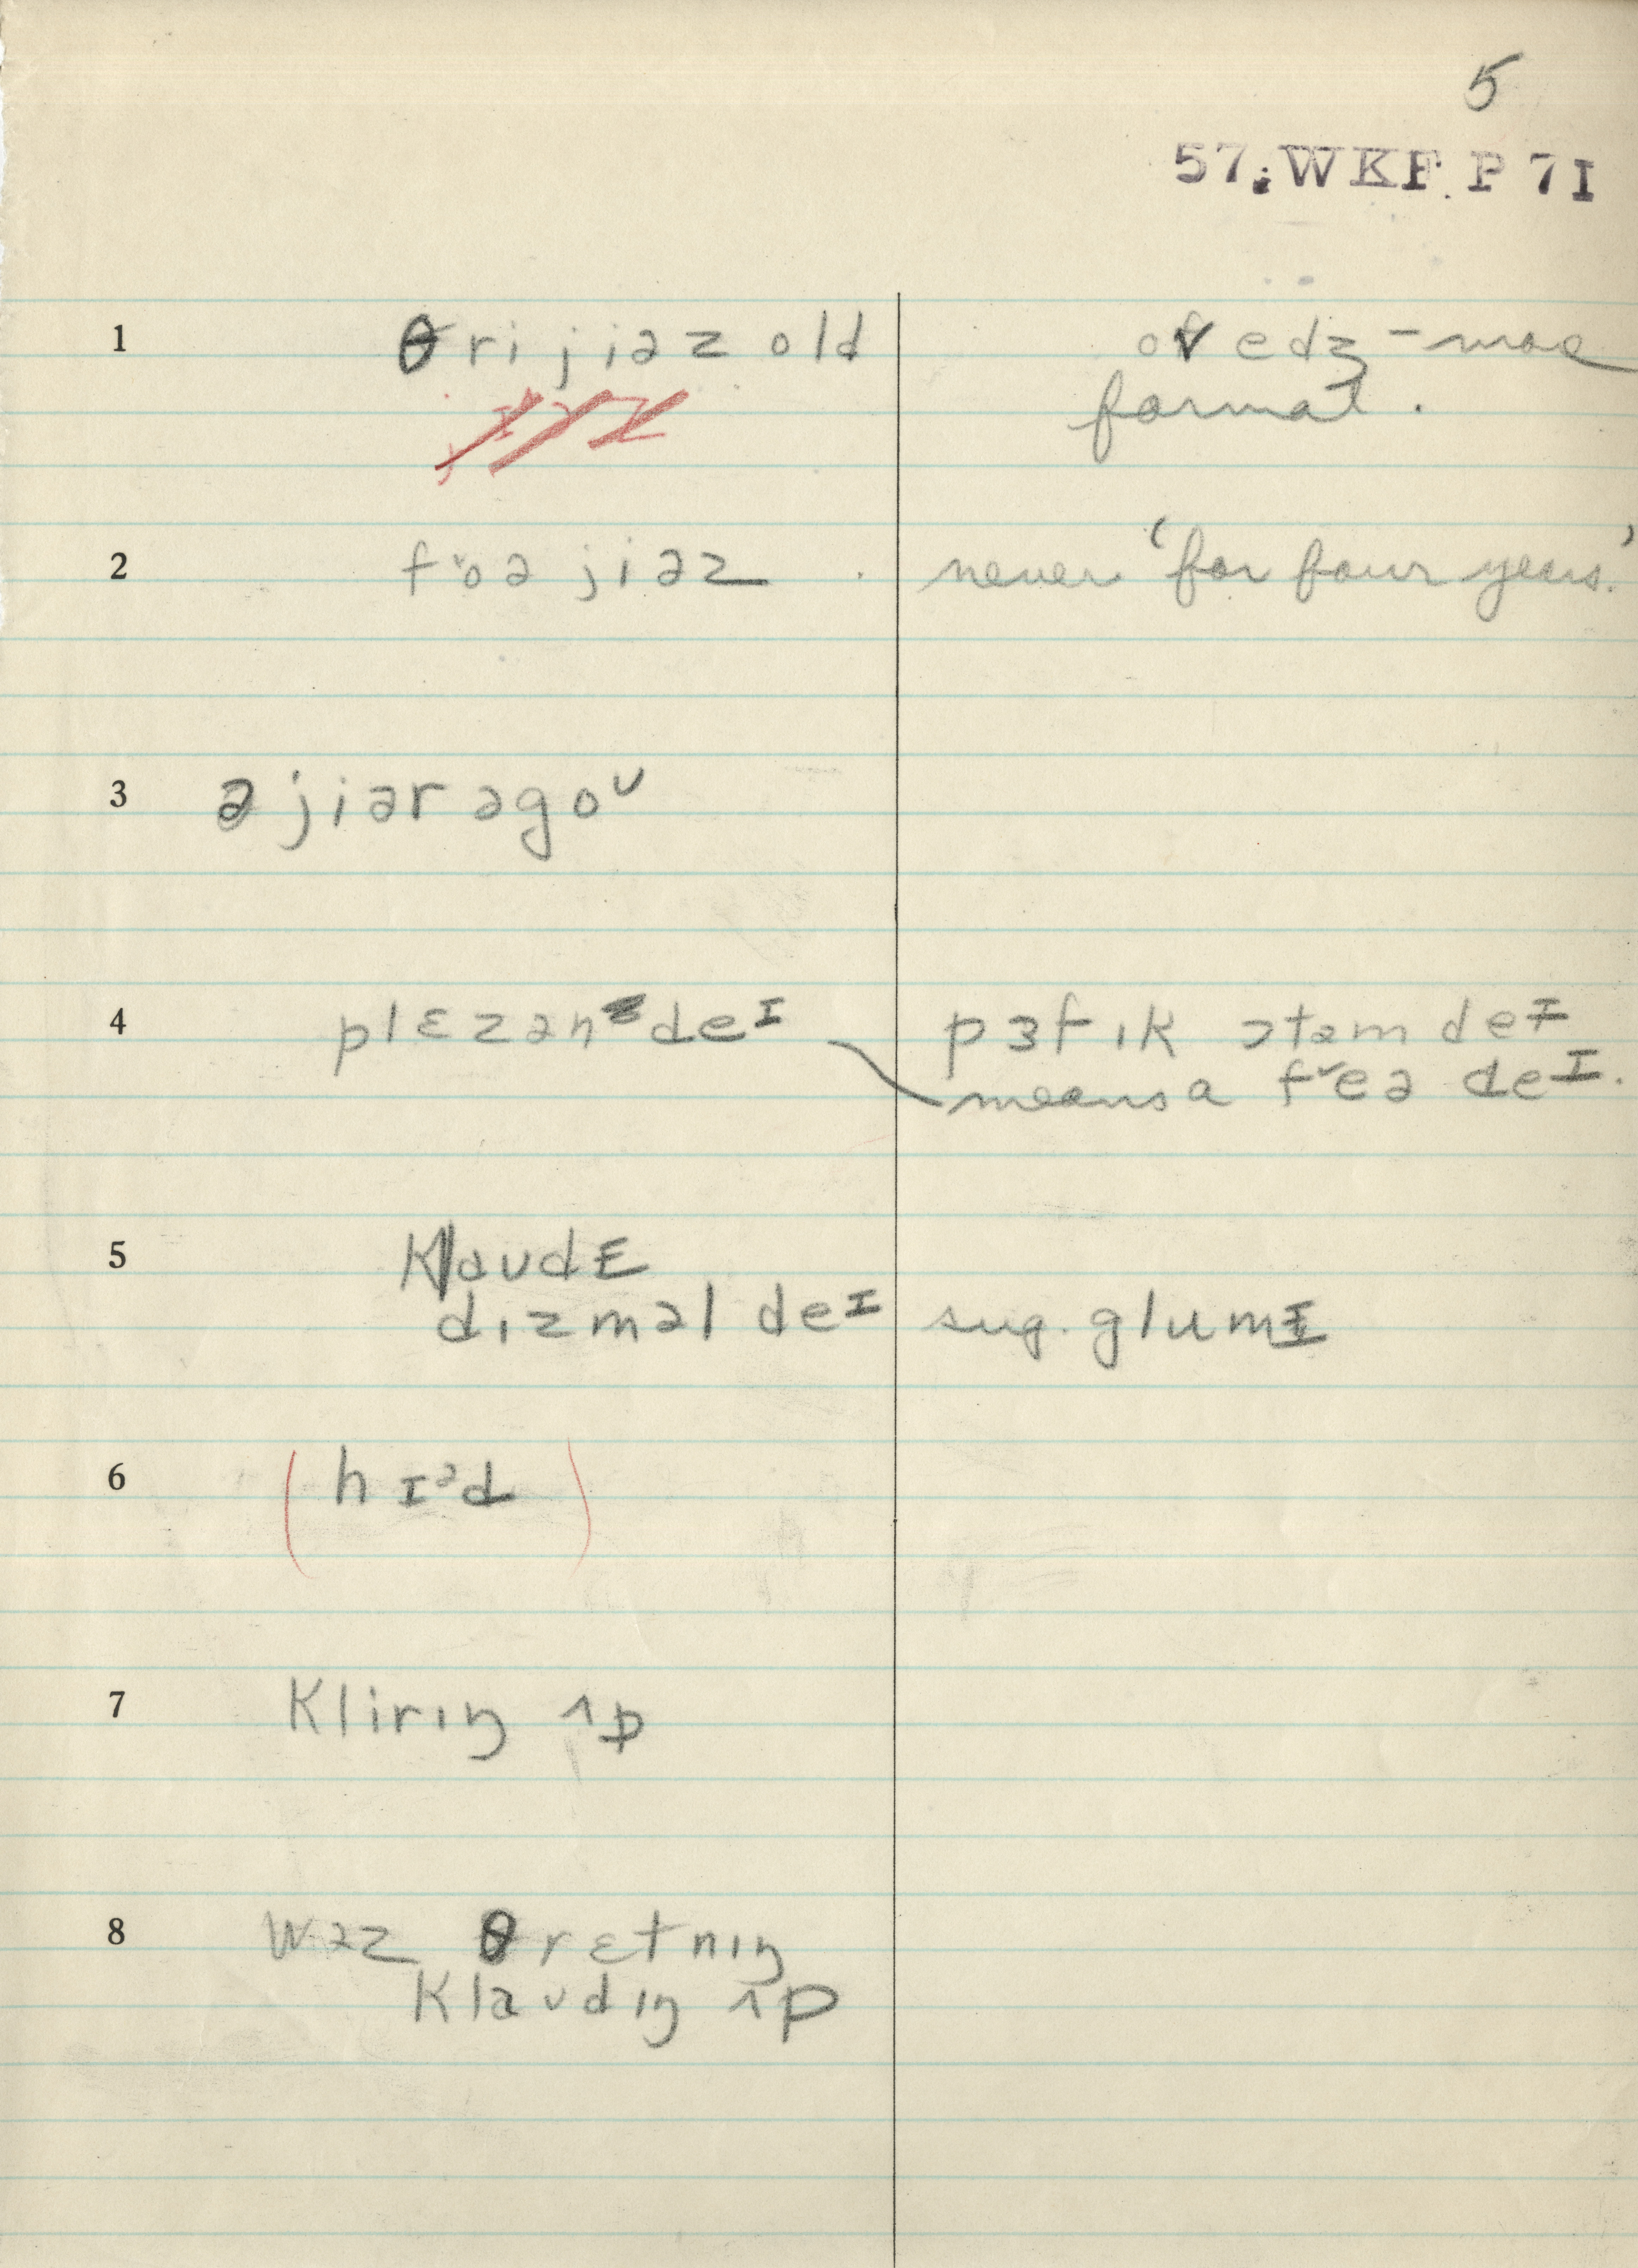 5
57. WKF. P 71
1 θri jiəz old ov edʒ - more
formal.
2 fᵛoə jiəz never 'for four years.'
3 ə jiər əgoᵛ
4 plɛzənt deᴵ pɜfɪk ɔtəm deᴵ
means a fᵛeə deᴵ.
5 klaudɛ
dɪzməl deᴵ sug. glumɪ
6 (hɪᵊd)
7 klirɪŋ ʌp
8 wəz θrɛtnɪŋ
klaudɪŋ ʌp